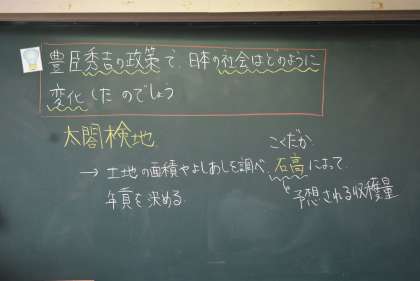 豊臣秀吉の政策で、日本の社会はどのように
変化したのでしょう
太閤検地
こくだか
→ 土地の面積やよしあしを調べ、石高によって、
年貢を決める。
予想される収穫量